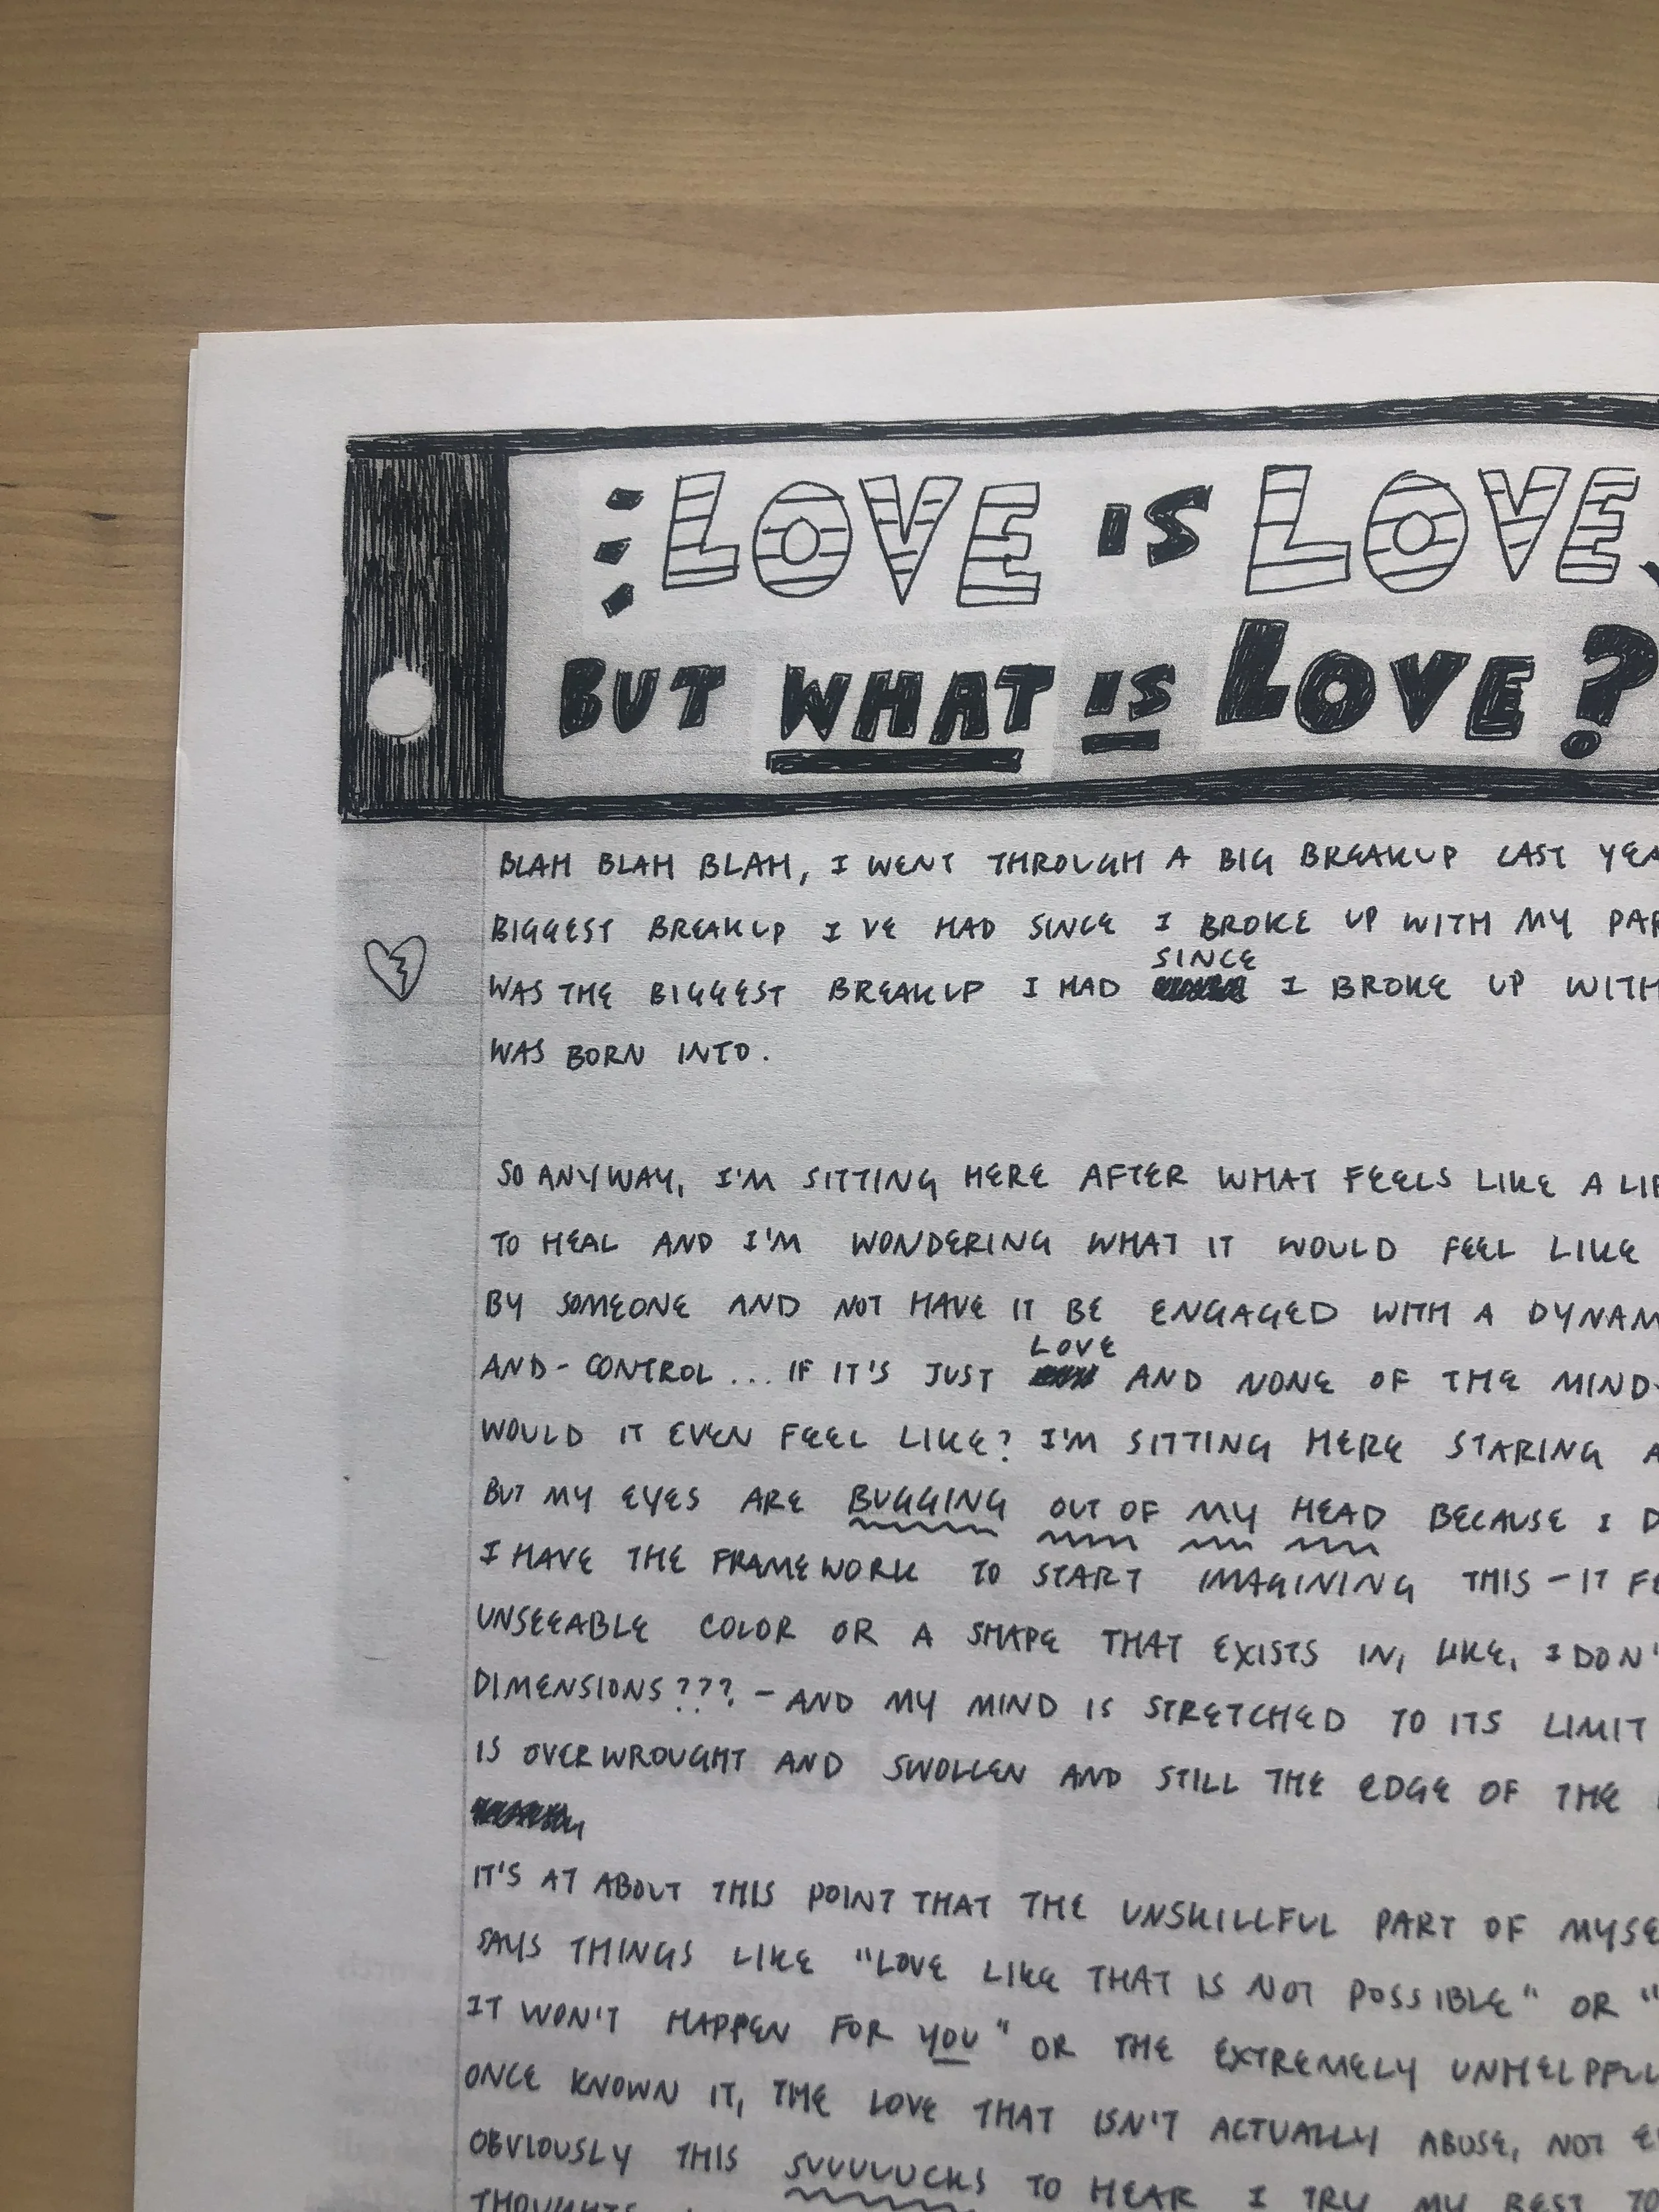 LOVE IS LOVE,
BUT WHAT IS LOVE?
BLAH BLAH BLAH, I WENT THROUGH A BIG BREAKUP LAST
BIGGEST BREAKUP I VE HAD SINCE I BROKE UP WITH MY
SINCE
WAS THE BIGGEST BREAKUP I HAD I BROKE UP WITH
WAS BORN INTO.
SO ANYWAY, I'M SITTING HERE AFTER WHAT FEELS LIKE A
TO HEAL AND I'M WONDERING WHAT IT WOULD FEEL LIKE
BY SOMEONE AND NOT HAVE IT BE ENGAGED WITH A
LOVE
AND-CONTROL... IF IT'S JUST AND NONE OF THE MIND-
WOULD IT EVEN FEEL LIKE? I'M SITTING HERE STARING
BUT MY EYES ARE BUGGING OUT OF MY HEAD BECAUSE I
I HAVE THE FRAMEWORK TO START IMAGINING THIS - IT
UNSEEABLE COLOR OR A SHAPE THAT EXISTS IN, LIKE, I DON'
DIMENSIONS???, - AND MY MIND IS STRETCHED TO ITS LIMIT
IS OVERWROUGHT AND SWOLLEN AND STILL THE EDGE OF THE
IT'S AT ABOUT THIS POINT THAT THE UNSKILLFUL PART OF MYSE
SAYS THINGS LIKE "LOVE LIKE THAT IS NOT POSSIBLE" OR "
IT WON'T HAPPEN FOR YOU" OR THE EXTREMELY UNHELPFUL
ONCE KNOWN IT, THE LOVE THAT ISN'T ACTUALLY ABUSE, NOT
OBVIOUSLY THIS SUUUUUCKS TO HEAR I TRY MY BEST TO
THOUGHTS